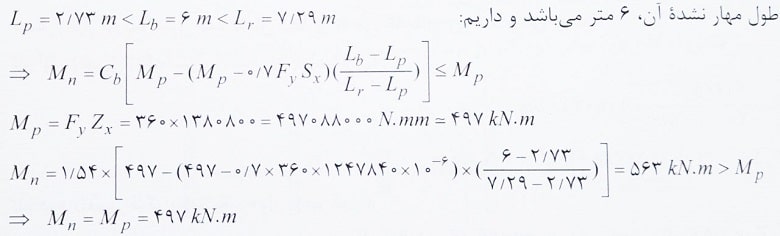 طول مهار نشدهٔ آن، ۶ متر می‌باشد و داریم:
L_p = ۲/۷۳ m < L_b = ۶ m < L_r = ۷/۲۹ m
⇒ M_n = C_b [ M_p − (M_p − ۰/۷ F_y S_x)( (L_b − L_p) / (L_r − L_p) ) ] ≤ M_p
M_p = F_y Z_x = ۳۶۰ × ۱۳۸۰۸۰۰ = ۴۹۷۰۸۸۰۰۰ N.mm ≃ ۴۹۷ kN.m
M_n = ۱/۵۴ × [ ۴۹۷ − (۴۹۷ − ۰/۷ × ۳۶۰ × ۱۲۴۷۸۴۰ × ۱۰^−۶) × ( (۶ − ۲/۷۳) / (۷/۲۹ − ۲/۷۳) ) ] = ۵۶۳ kN.m > M_p
⇒ M_n = M_p = ۴۹۷ kN.m